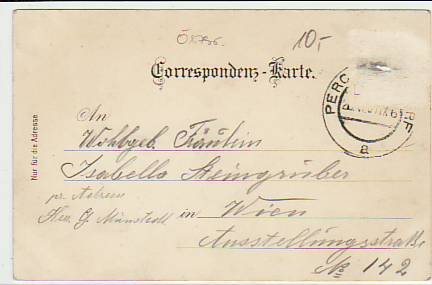 ÖK706.
10,-
Correspondenz-Karte.
PERC
F
a
Nur für die Adresse
An
Wohlgeb. Fräulein
Isabella Steingruber
pr. Adresse
Herr G. Münstedt in Wien
Ausstellungsstraße
№ 142